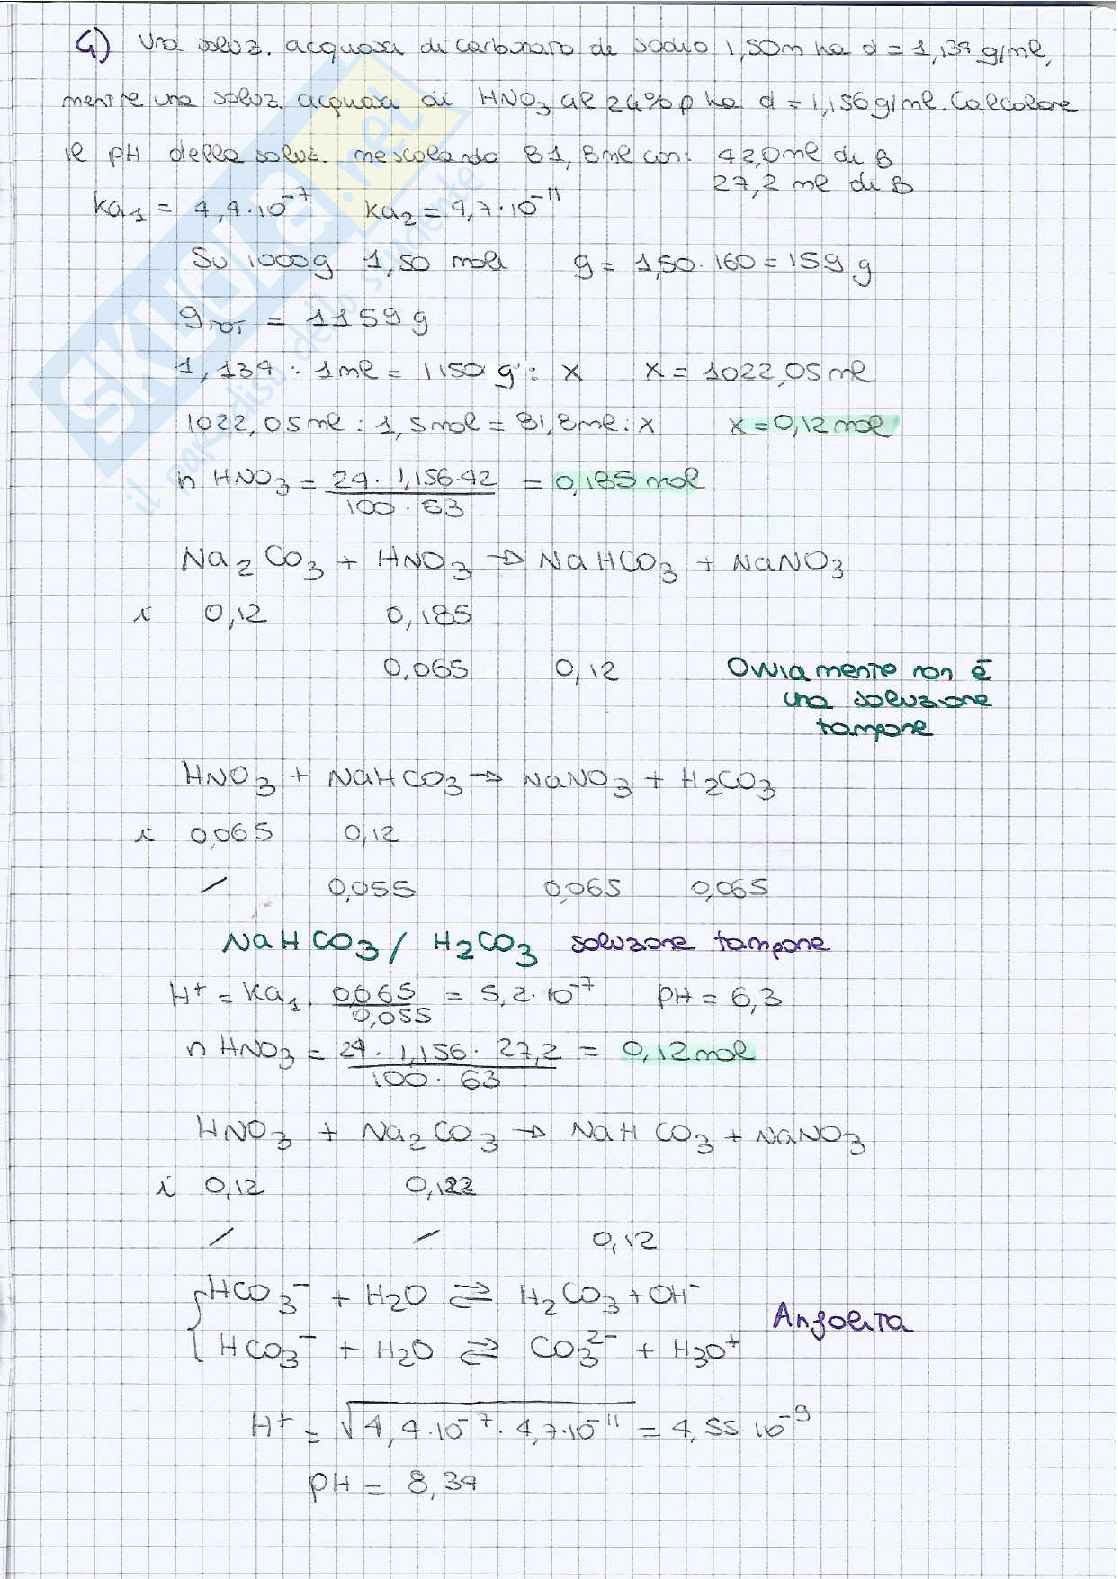 4) Una soluz. acquosa di carbonato di sodio 1,50m ha d = 1,134 g/ml,
mentre una soluz. acquosa di HNO3 al 24% p ha d = 1,156 g/ml. Calcolare
il pH della soluz. mescolando 81,8ml con: 42,0ml di B
27,2 ml di B
ka1 = 4,4·10^-7 ka2 = 4,7·10^-11
Su 1000g 1,50 moli g = 1,50·160 = 159 g
gtot = 1159 g
1,134 : 1ml = 1159 g : x x = 1022,05 ml
1022,05ml : 1,5mol = 81,8ml : x x = 0,12 mol
n HNO3 = 24 · 1,156·42 / 100 · 63 = 0,185 mol
Na2CO3 + HNO3 → NaHCO3 + NaNO3
i 0,12 0,185
0,065 0,12 Ovviamente non è
una soluzione
tampone
HNO3 + NaHCO3 → NaNO3 + H2CO3
i 0,065 0,12
/ 0,055 0,065 0,065
NaHCO3 / H2CO3 soluzione tampone
H+ = ka1 · 0,065 / 0,055 = 5,2·10^-7 pH = 6,3
n HNO3 = 24 · 1,156 · 27,2 / 100 · 63 = 0,12 mol
HNO3 + Na2CO3 → NaHCO3 + NaNO3
i 0,12 0,122
/ / 0,12
HCO3^- + H2O ⇌ H2CO3 + OH^-
Anfolita
HCO3^- + H2O ⇌ CO3^2- + H3O^+
H+ = √4,4·10^-7 · 4,7·10^-11 = 4,55 10^-9
pH = 8,34
SKUOLA.net
il paradiso dello studente